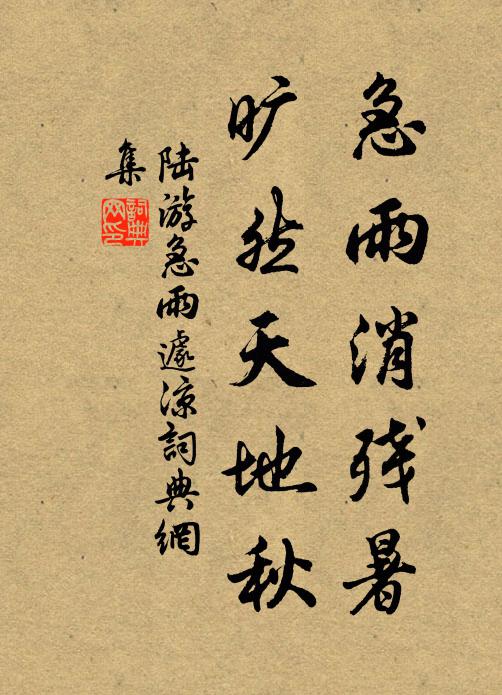 急雨消残暑
旷然天地秋
陆游急雨遽凉詞典網
集
詞典网印